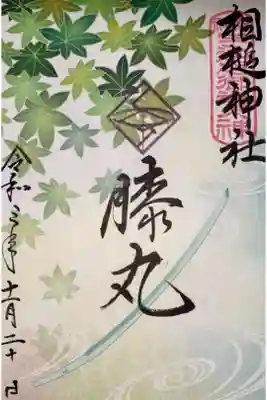 相槌神社
膝丸
令和三年十一月二十日